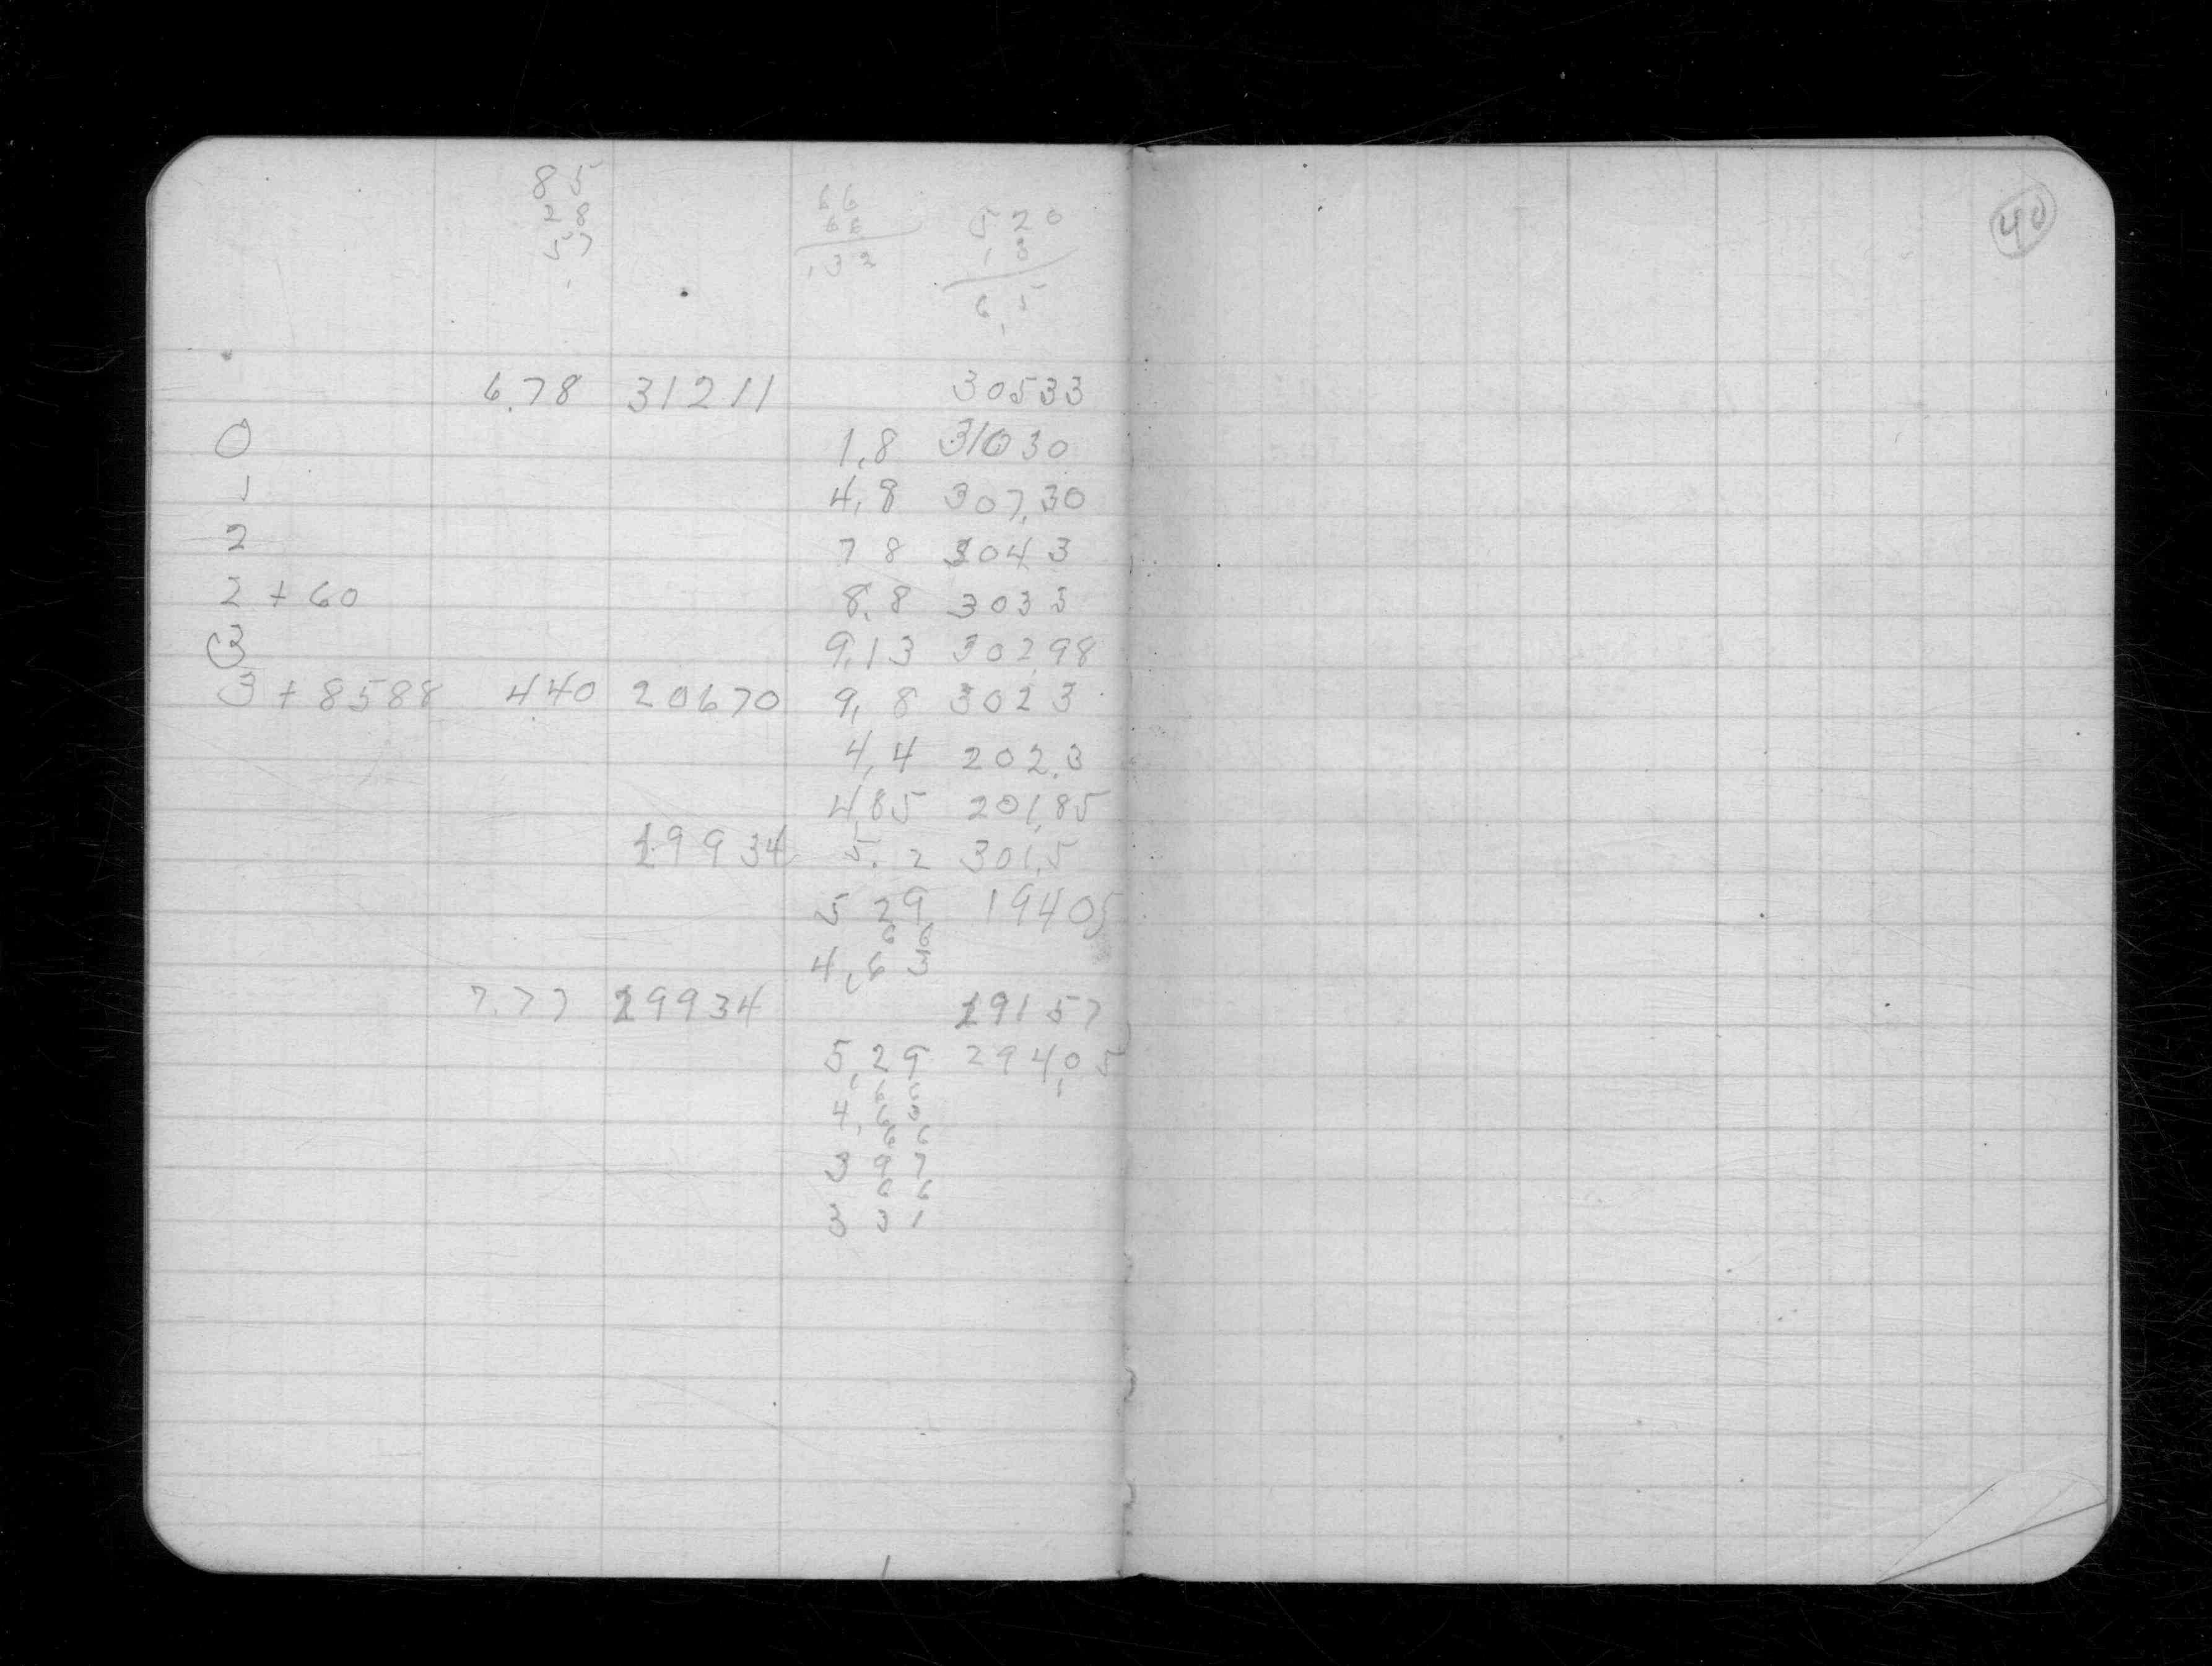 85
28
57
66
66
132
520
13
6,5
40
6.78 31211 30533
0 1,8 31030
1 4,8 307,30
2 7 8 3043
2 + 60 8,8 3033
3 9,13 302,98
3 + 8588 440 20670 9, 8 3023
4,4 202.3
4,85 201,85
19934 5. 2 301.5
5 29 19405
6 6
4,63
7.77 19934 19157
5,29 294,05
6 6
4,63
6 6
3 97
6 6
3 31